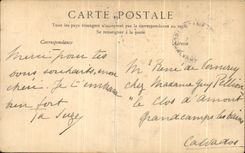 CARTE POSTALE
Tous les pays étrangers n'acceptent pas la correspondance au recto.
Se renseigner à la poste
Correspondance
Adresse
Merci pour tes
bons souhaits, mon
chéri. Je t'embrasse
bien fort
ta Suze
Mr René de
chez Madame Guy
"le Clos d'Amont"
Grandcamp les Bains
Calvados